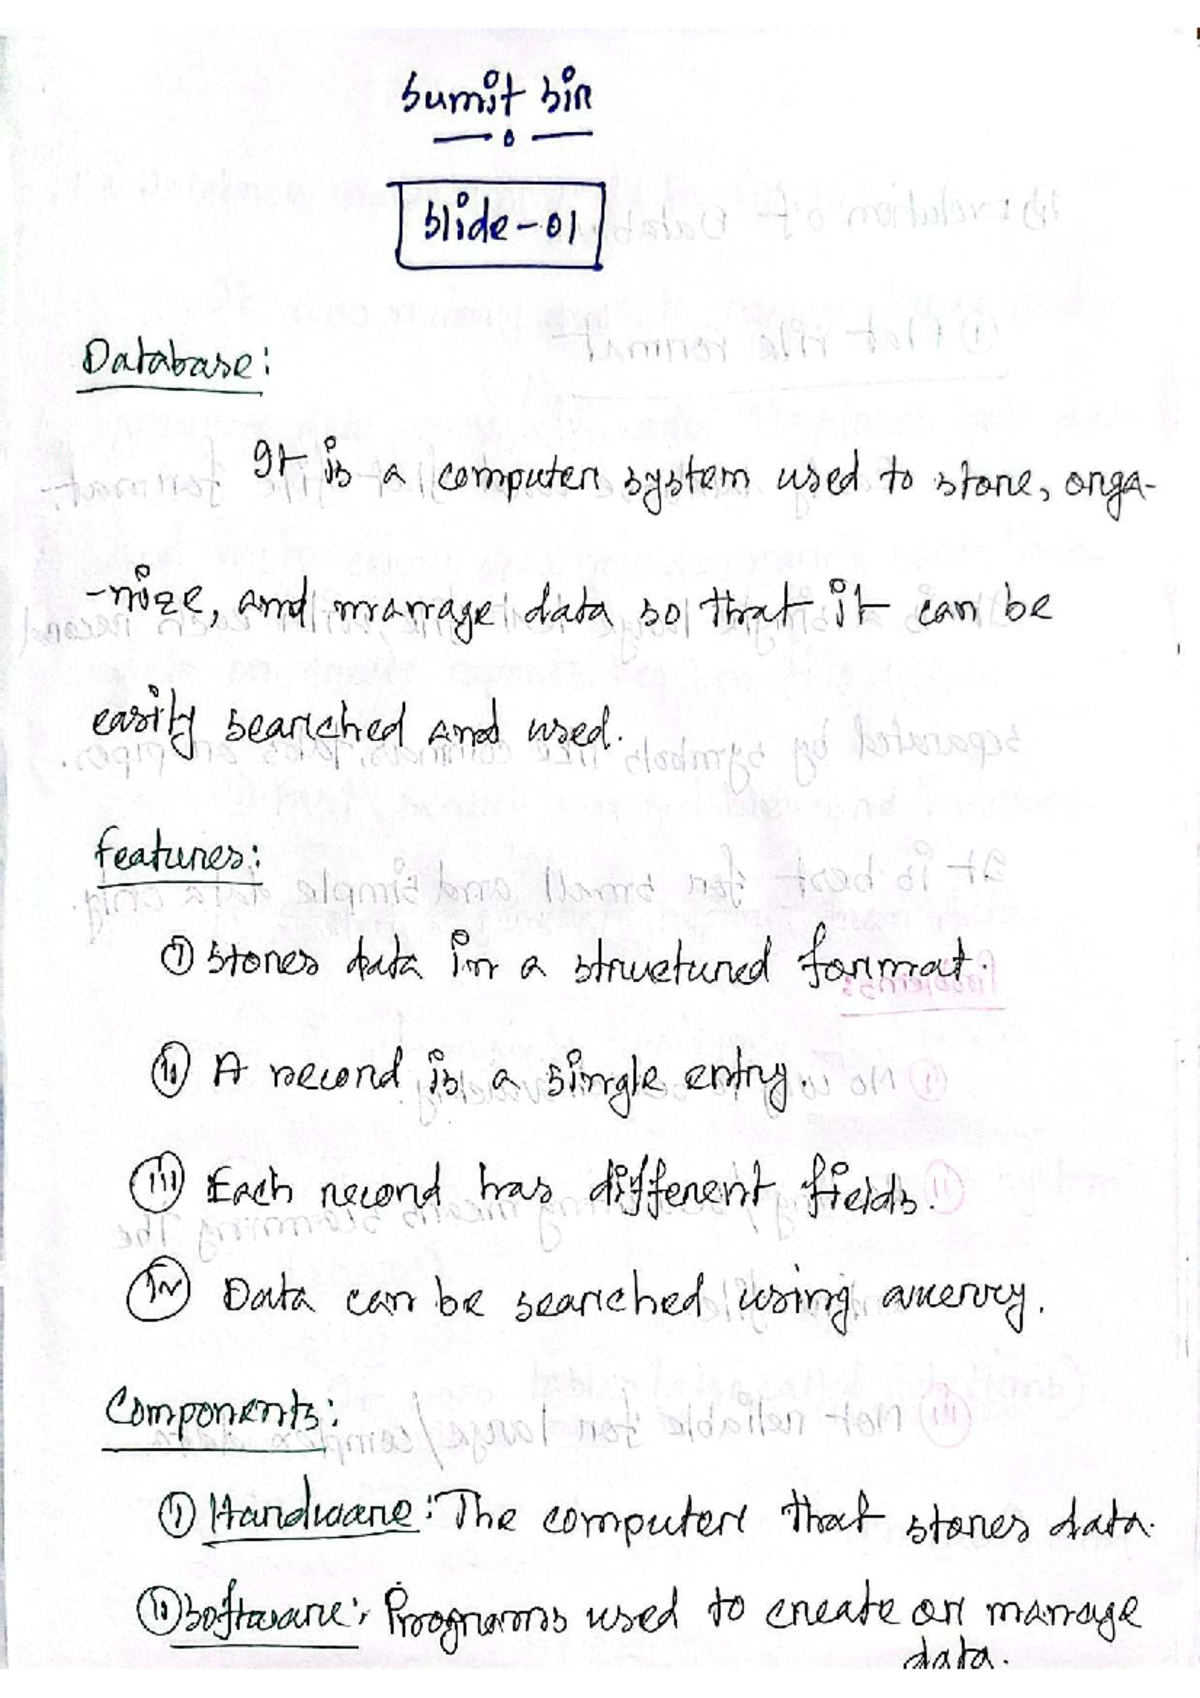 Sumit Sir
Slide-01
Database:
It is a computer system used to store, orga-
-nize, and manage data so that it can be
easily searched and used.
Features:
(i) Stores data in a structured format.
(ii) A record is a single entry.
(iii) Each record has different fields.
(iv) Data can be searched using query.
Components:
(i) Hardware: The computer that stores data.
(ii) Software: Programs used to create or manage
data.